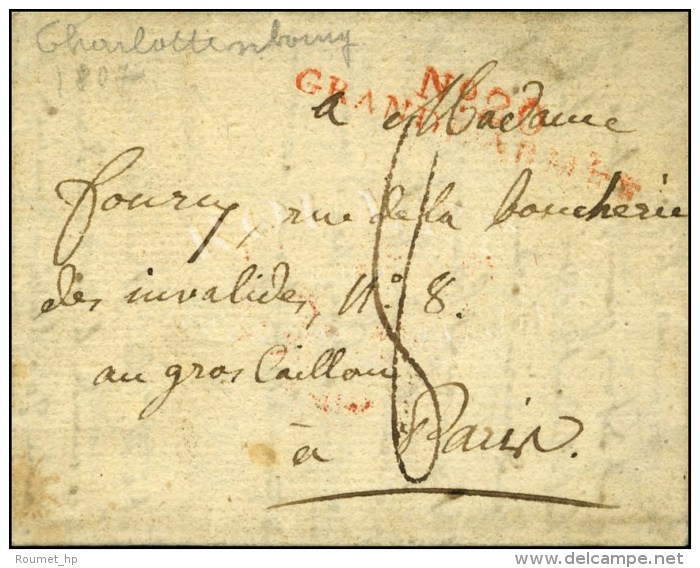 Charlottenbourg
1807
No. 26
GRANDE ARMÉE
a Madame
fourny, rue de la boucherie
des invalides, N.° 8.
au gros Caillou
à Paris.
Roumet_hp
delcampe.net